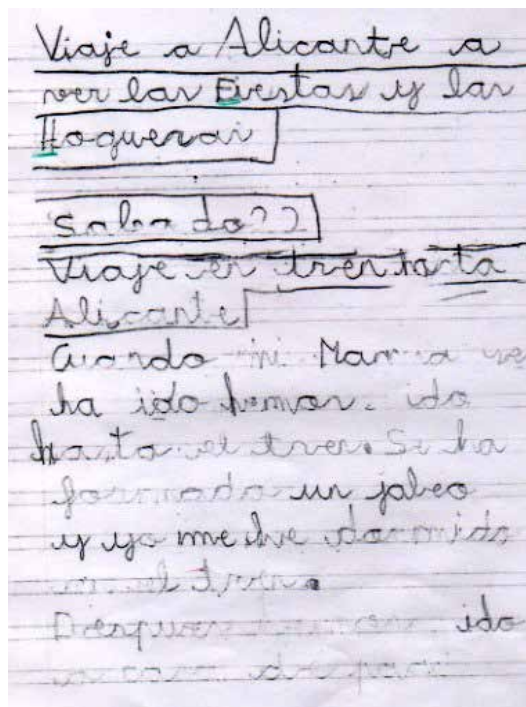 Viaje a Alicante a
ver las Fiestas y las
Hogueras
Sabado 22
Viaje en tren hasta
Alicante
Cuando mi Mama se
ha ido hemos ido
hasta el tren. Se ha
formado un jaleo
y yo me he dormido
en el tren.
Despues hemos ido
a casa de